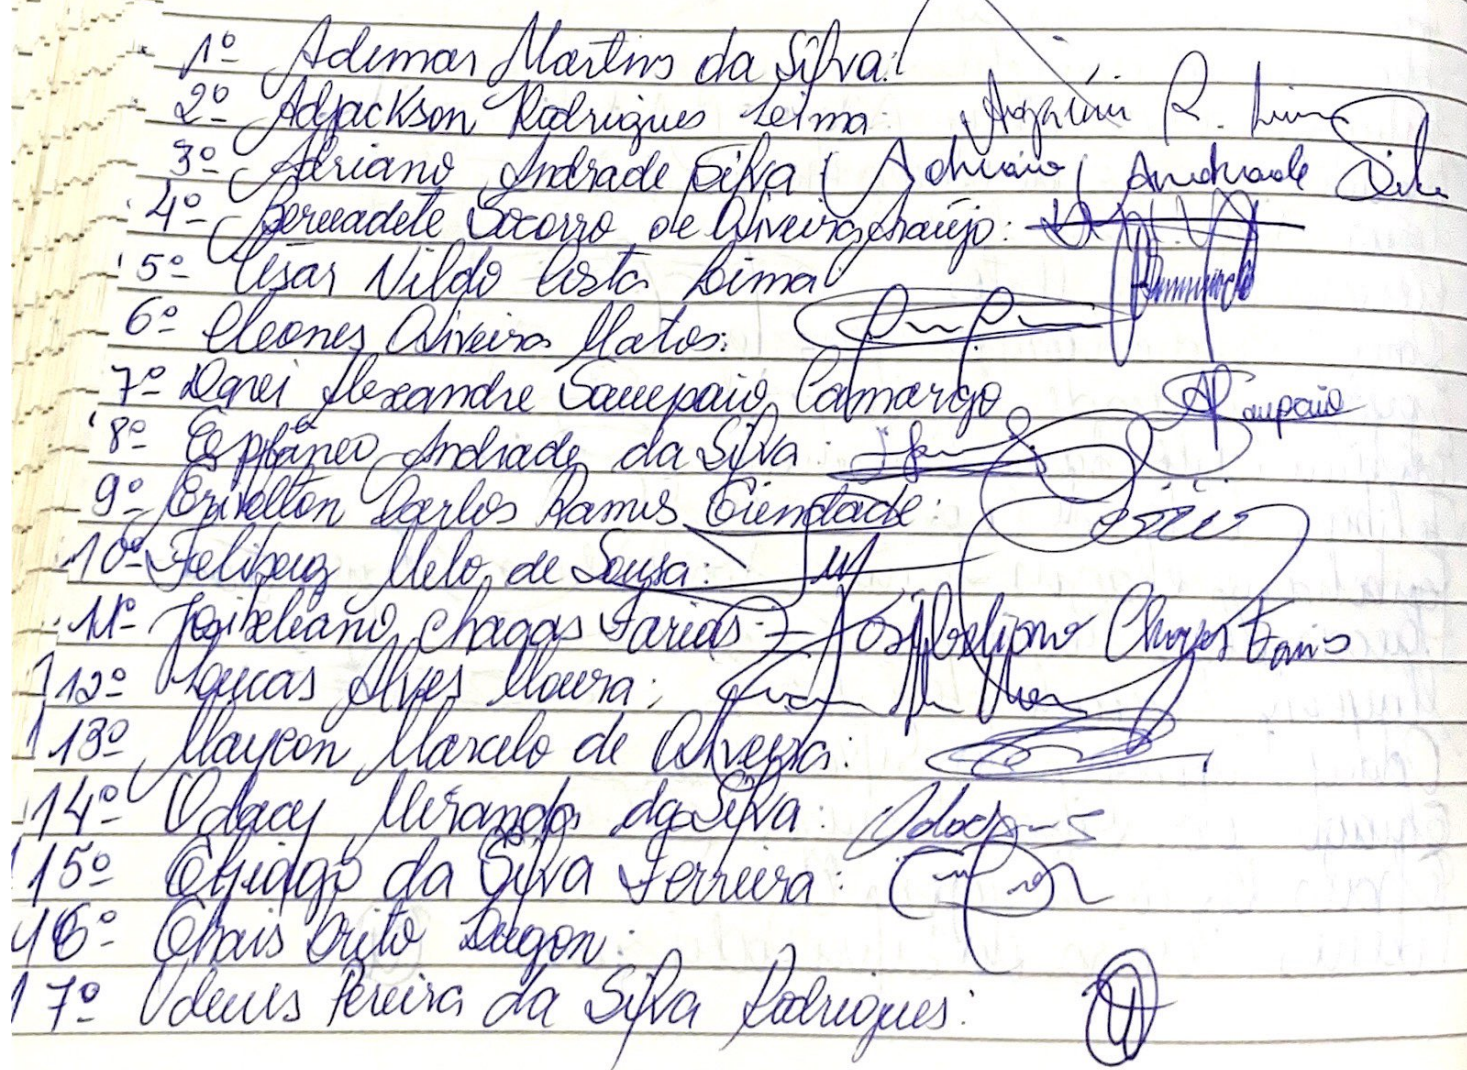 1º Ademar Martins da Silva:
2º Adjackson Rodrigues Leima: R. Lima
3º Adriano Andrade Silva ( Adriano Andrade Silva
4º Bernadete Socorro de Oliveira Araújo:
5º César Nildo Costa Lima
6º Cleones Oliveira Matos:
7º Darei Alexandre Sampaio Camargo Sampaio
8º Andrade da Silva:
9º Carlos Ramos
10º Melo de Sousa:
11º Chagas Farias: Chagas Farias
12º Loucas Alves Moura:
13º Maycon Marcelo de Oliveira:
14º Odacy Miranda da Silva:
15º Thiago da Silva Ferreira:
16º Thais Brito
17º Pereira da Silva Rodrigues: